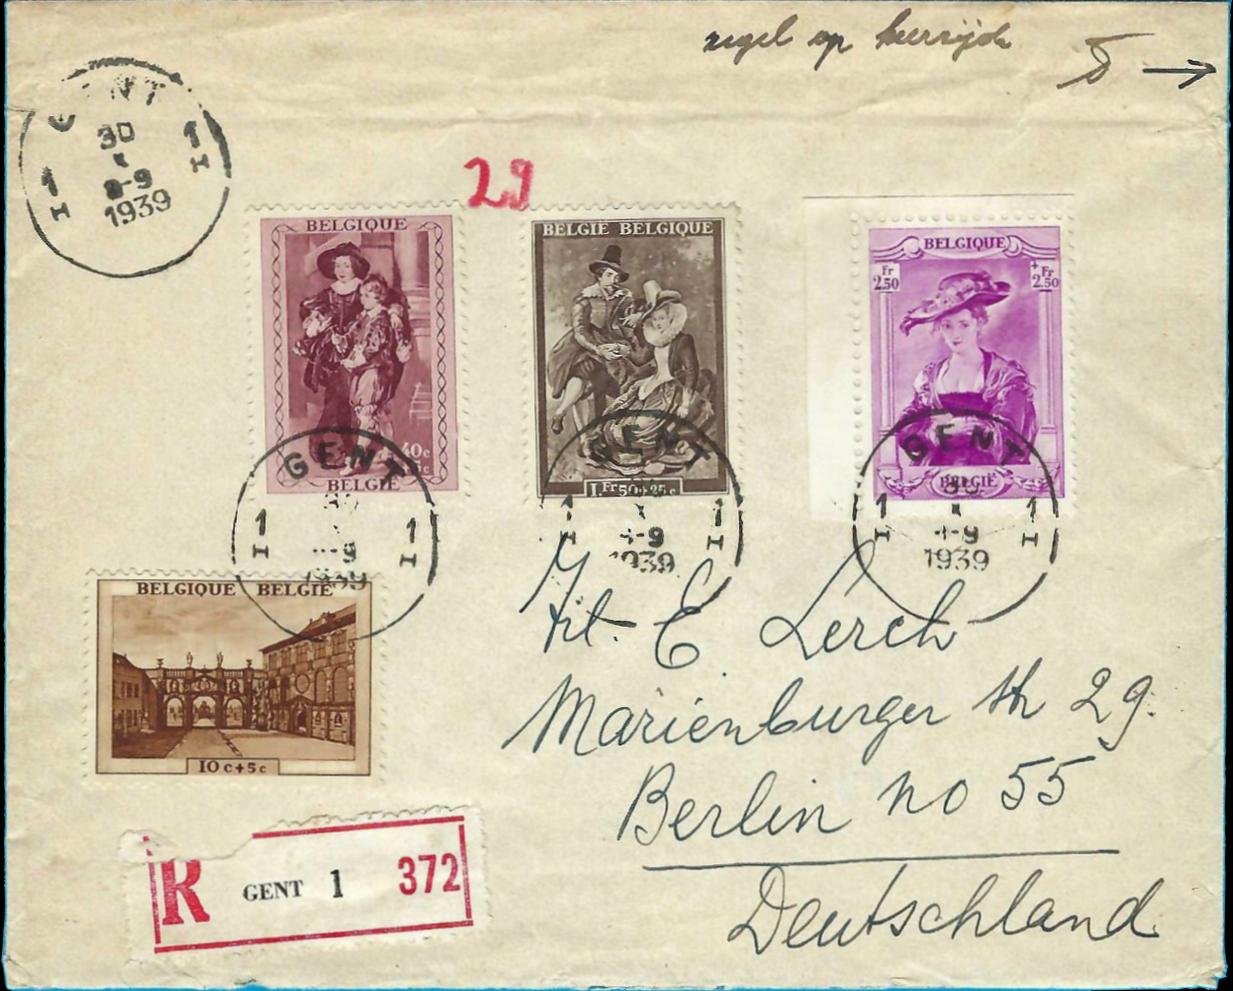 zegel op keerzijde
GENT
30
X
8-9
1939
1 1
I I
29
BELGIQUE
40c
BELGIË
BELGIË BELGIQUE
1Fr50+25c
BELGIQUE
Fr 2.50
+Fr 2.50
BELGIË
GENT
1 1
I I
-9
1939
GENT
1 1
I I
X
-9
1939
GENT
30
1 1
I I
X
-9
1939
BELGIQUE BELGIË
10c+5c
E Lerch
Marienburger str 29.
Berlin no 55
Deutschland
R GENT 1 372